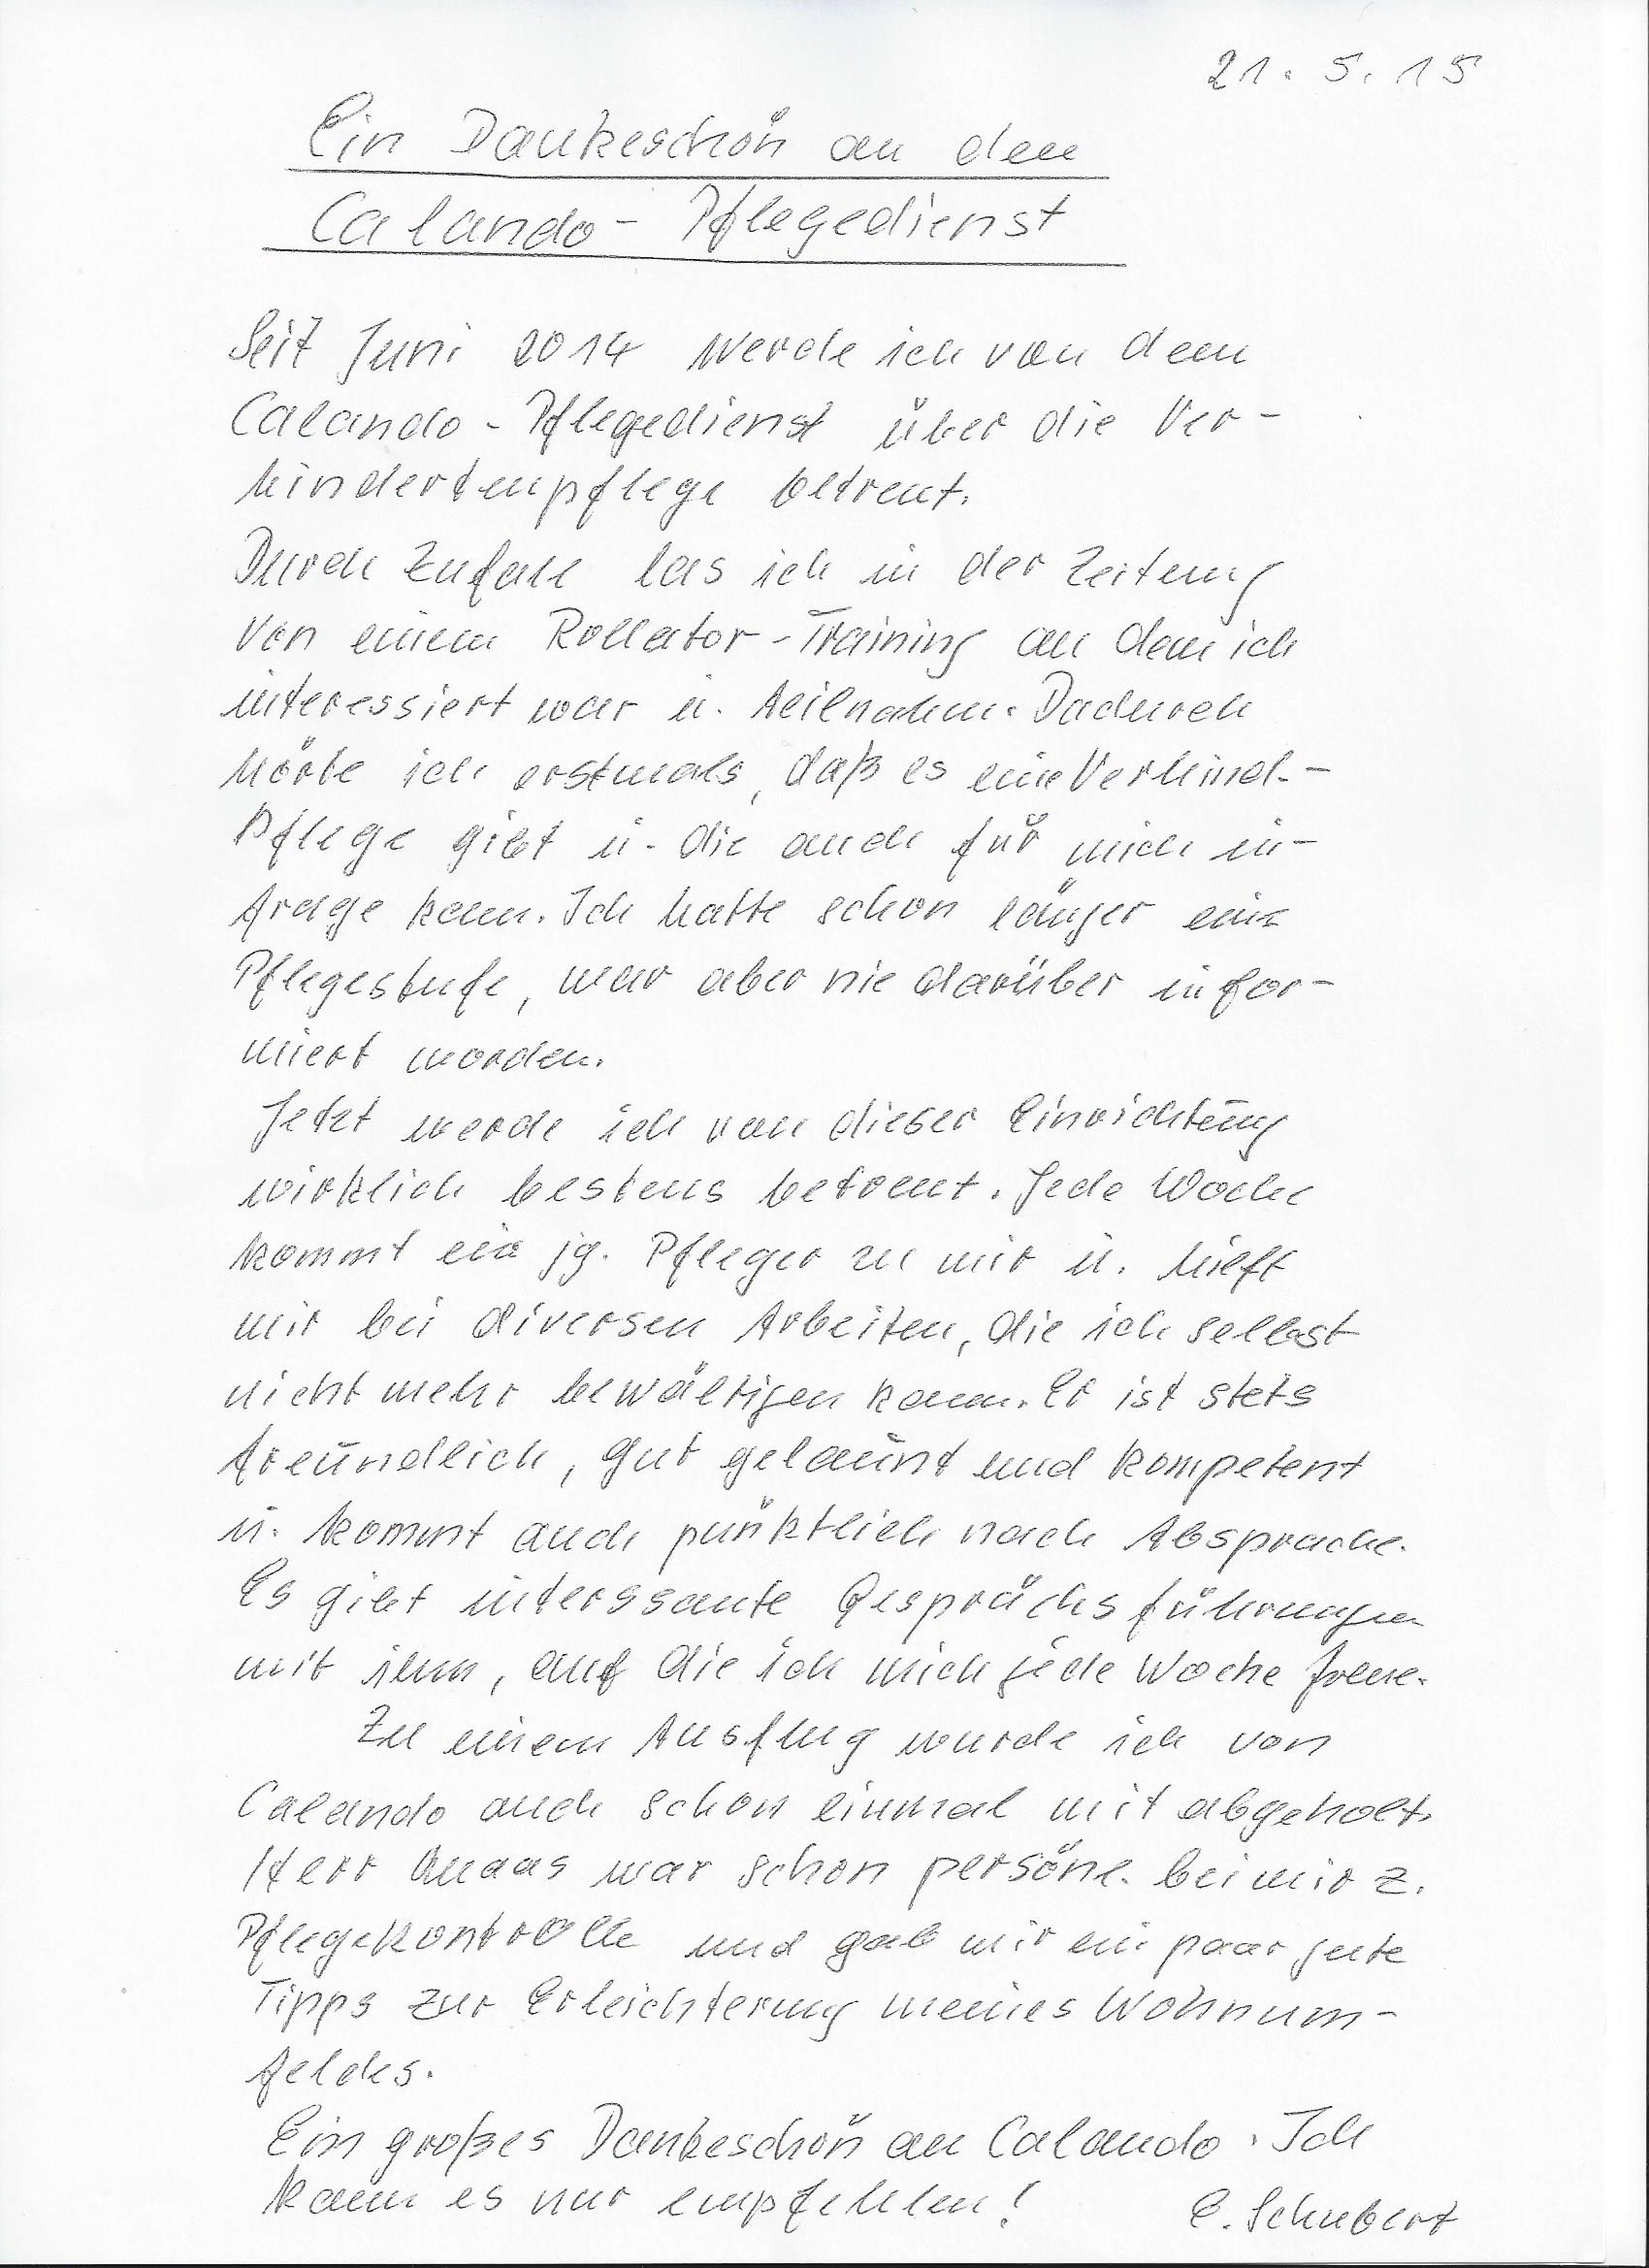 21. 5. 15
Ein Dankeschön an den
Calando - Pflegedienst
Seit Juni 2014 werde ich von dem
Calando - Pflegedienst über die Ver-
hindertenpflege betreut.
Durch Zufall las ich in der Zeitung
von einem Rollator - Training an dem ich
interessiert war u. teilnahm. Dadurch
hörte ich erstmals, daß es eine Verhind.-
Pflege gibt u. die auch für mich in-
frage kam. Ich hatte schon länger eine
Pflegestufe, war aber nie darüber infor-
miert worden.
Jetzt werde ich von dieser Einrichtung
wirklich bestens betreut. Jede Woche
kommt ein jg. Pfleger zu mir u. hilft
mir bei diversen Arbeiten, die ich selbst
nicht mehr bewältigen kann. Er ist stets
freundlich, gut gelaunt und kompetent
u. kommt auch pünktlich nach Absprache.
Es gibt interssante Gesprächsführungen
mit ihm, auf die ich mich jede Woche freue.
Zu einem Ausflug wurde ich von
Calando auch schon einmal mit abgeholt.
Herr war schon persönl. bei mir z.
Pflegekontrolle und gab mir ein paar gute
Tipps zur Erleichterung meines Wohnum-
feldes.
Ein großes Dankeschön an Calando. Ich
kann es nur empfehlen!
E. Schubert